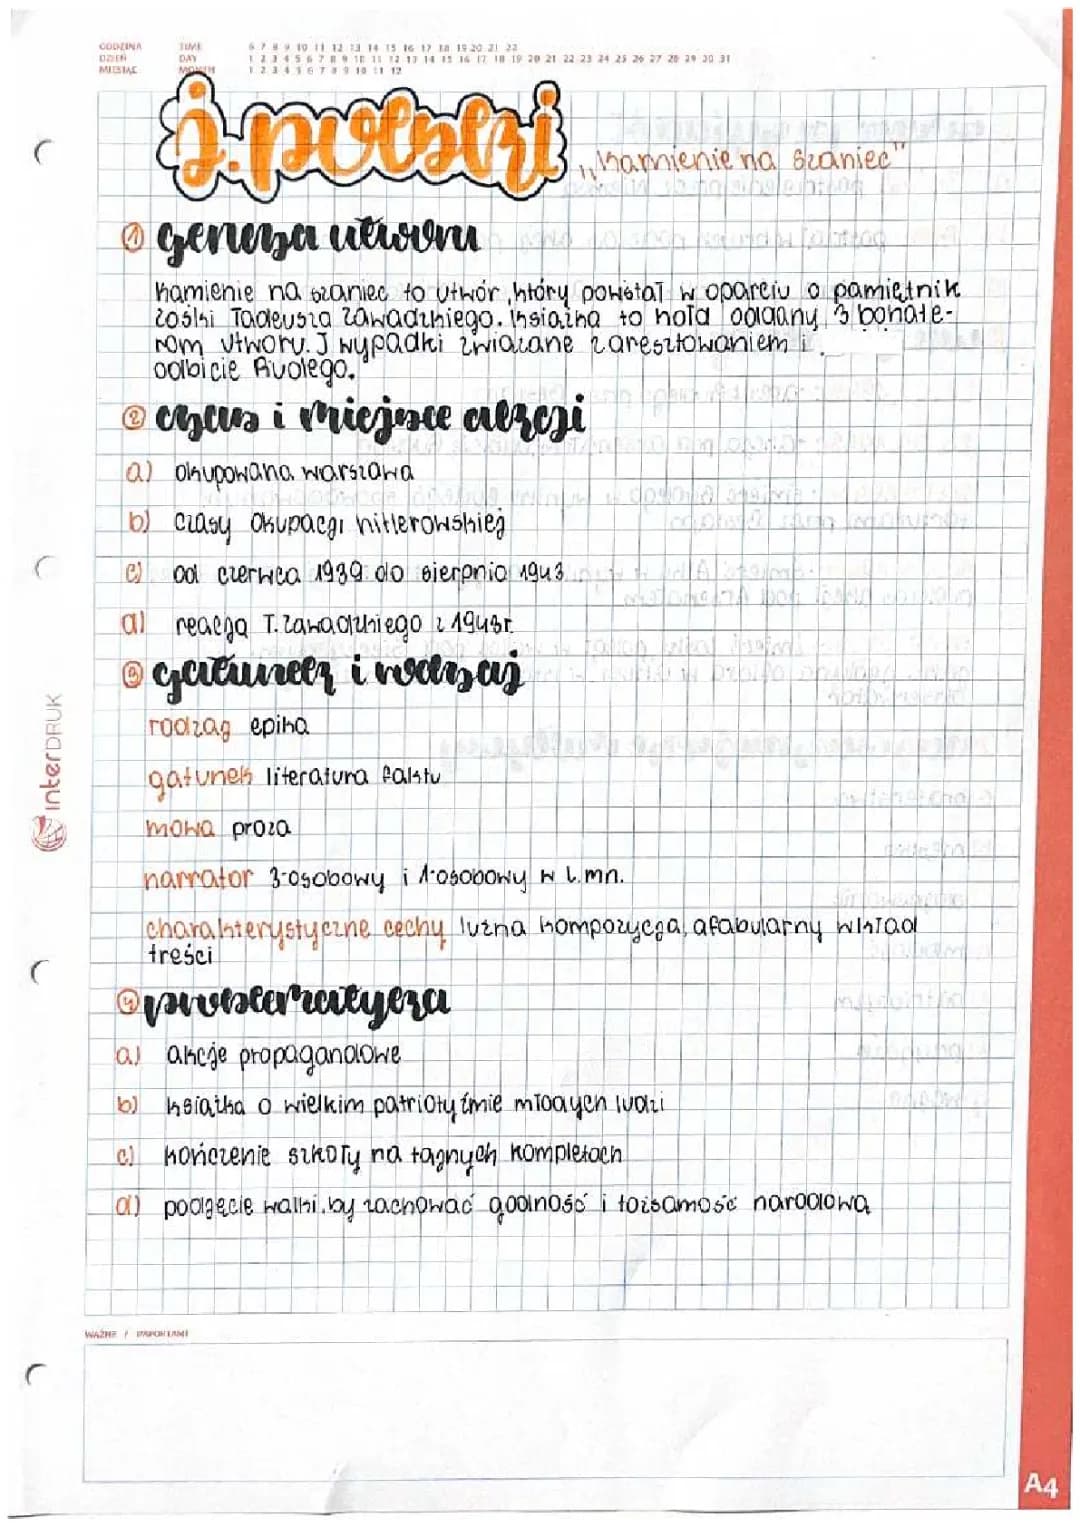 GODZINA TIME 6 7 8 9 10 11 12 13 14 15 16 17 18 19 20 21 22
DZIEŃ DAY 1 2 3 4 5 6 7 8 9 10 11 12 13 14 15 16 17 18 19 20 21 22 23 24 25 26 27 28 29 30 31
MIESIĄC MONTH 1 2 3 4 5 6 7 8 9 10 11 12
j. polski
„Kamienie na szaniec"
1 geneza utworu
Kamienie na szaniec to utwór, który powstał w oparciu o pamiętnik
Zośki Tadeusza Zawadzkiego. Książka to hołd oddany 3 bohate-
rom utworu. I wypadki związane z aresztowaniem i
odbicie Rudego.
2 czas i miejsce akcji
a) okupowana warszawa
b) czasy okupacji hitlerowskiej
c) od czerwca 1939 do sierpnia 1943
d) reacja T. Zawadzkiego z 1943r.
3 gatunek i rodzaj
rodzaj epika
gatunek literatura faktu
mowa proza
narrator 3-osobowy i 1-osobowy w l.mn.
charakterystyczne cechy luźna kompozycja, afabularny wkład
treści
4 problematyka
a) akcje propagandowe
b) książka o wielkim patriotyźmie młodych ludzi
c) kończenie szkoły na tajnych kompletach
d) podjęcie walki, by zachować godność i tożsamość narodową
WAŻNE / IMPORTANT
interDRUK
A4